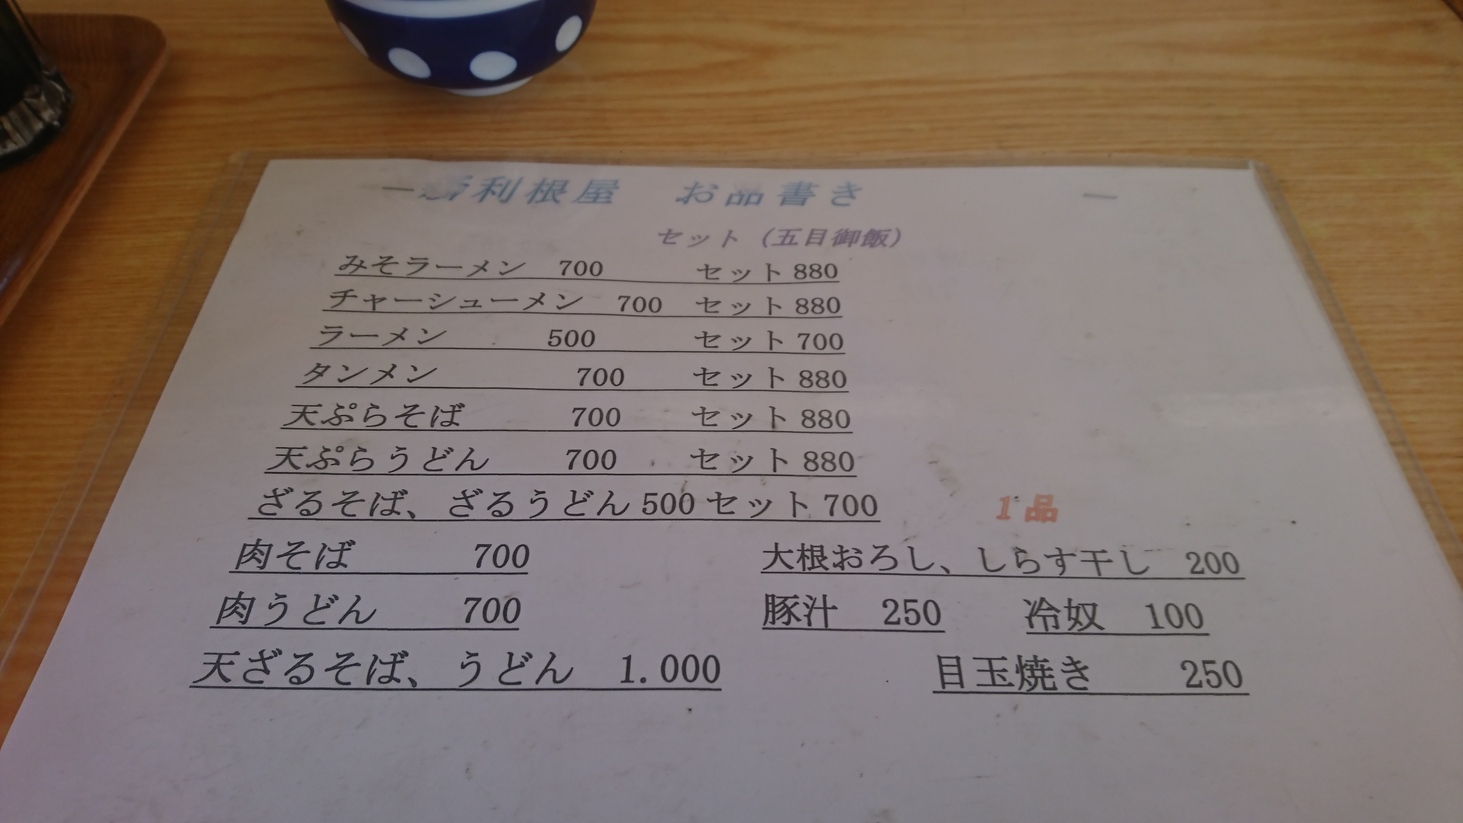 利根屋　お品書き
セット（五目御飯）
みそラーメン　700　セット880
チャーシューメン　700　セット880
ラーメン　500　セット700
タンメン　700　セット880
天ぷらそば　700　セット880
天ぷらうどん　700　セット880
ざるそば、ざるうどん500セット700
1品
肉そば　700　大根おろし、しらす干し　200
肉うどん　700　豚汁　250　冷奴　100
天ざるそば、うどん　1.000　目玉焼き　250